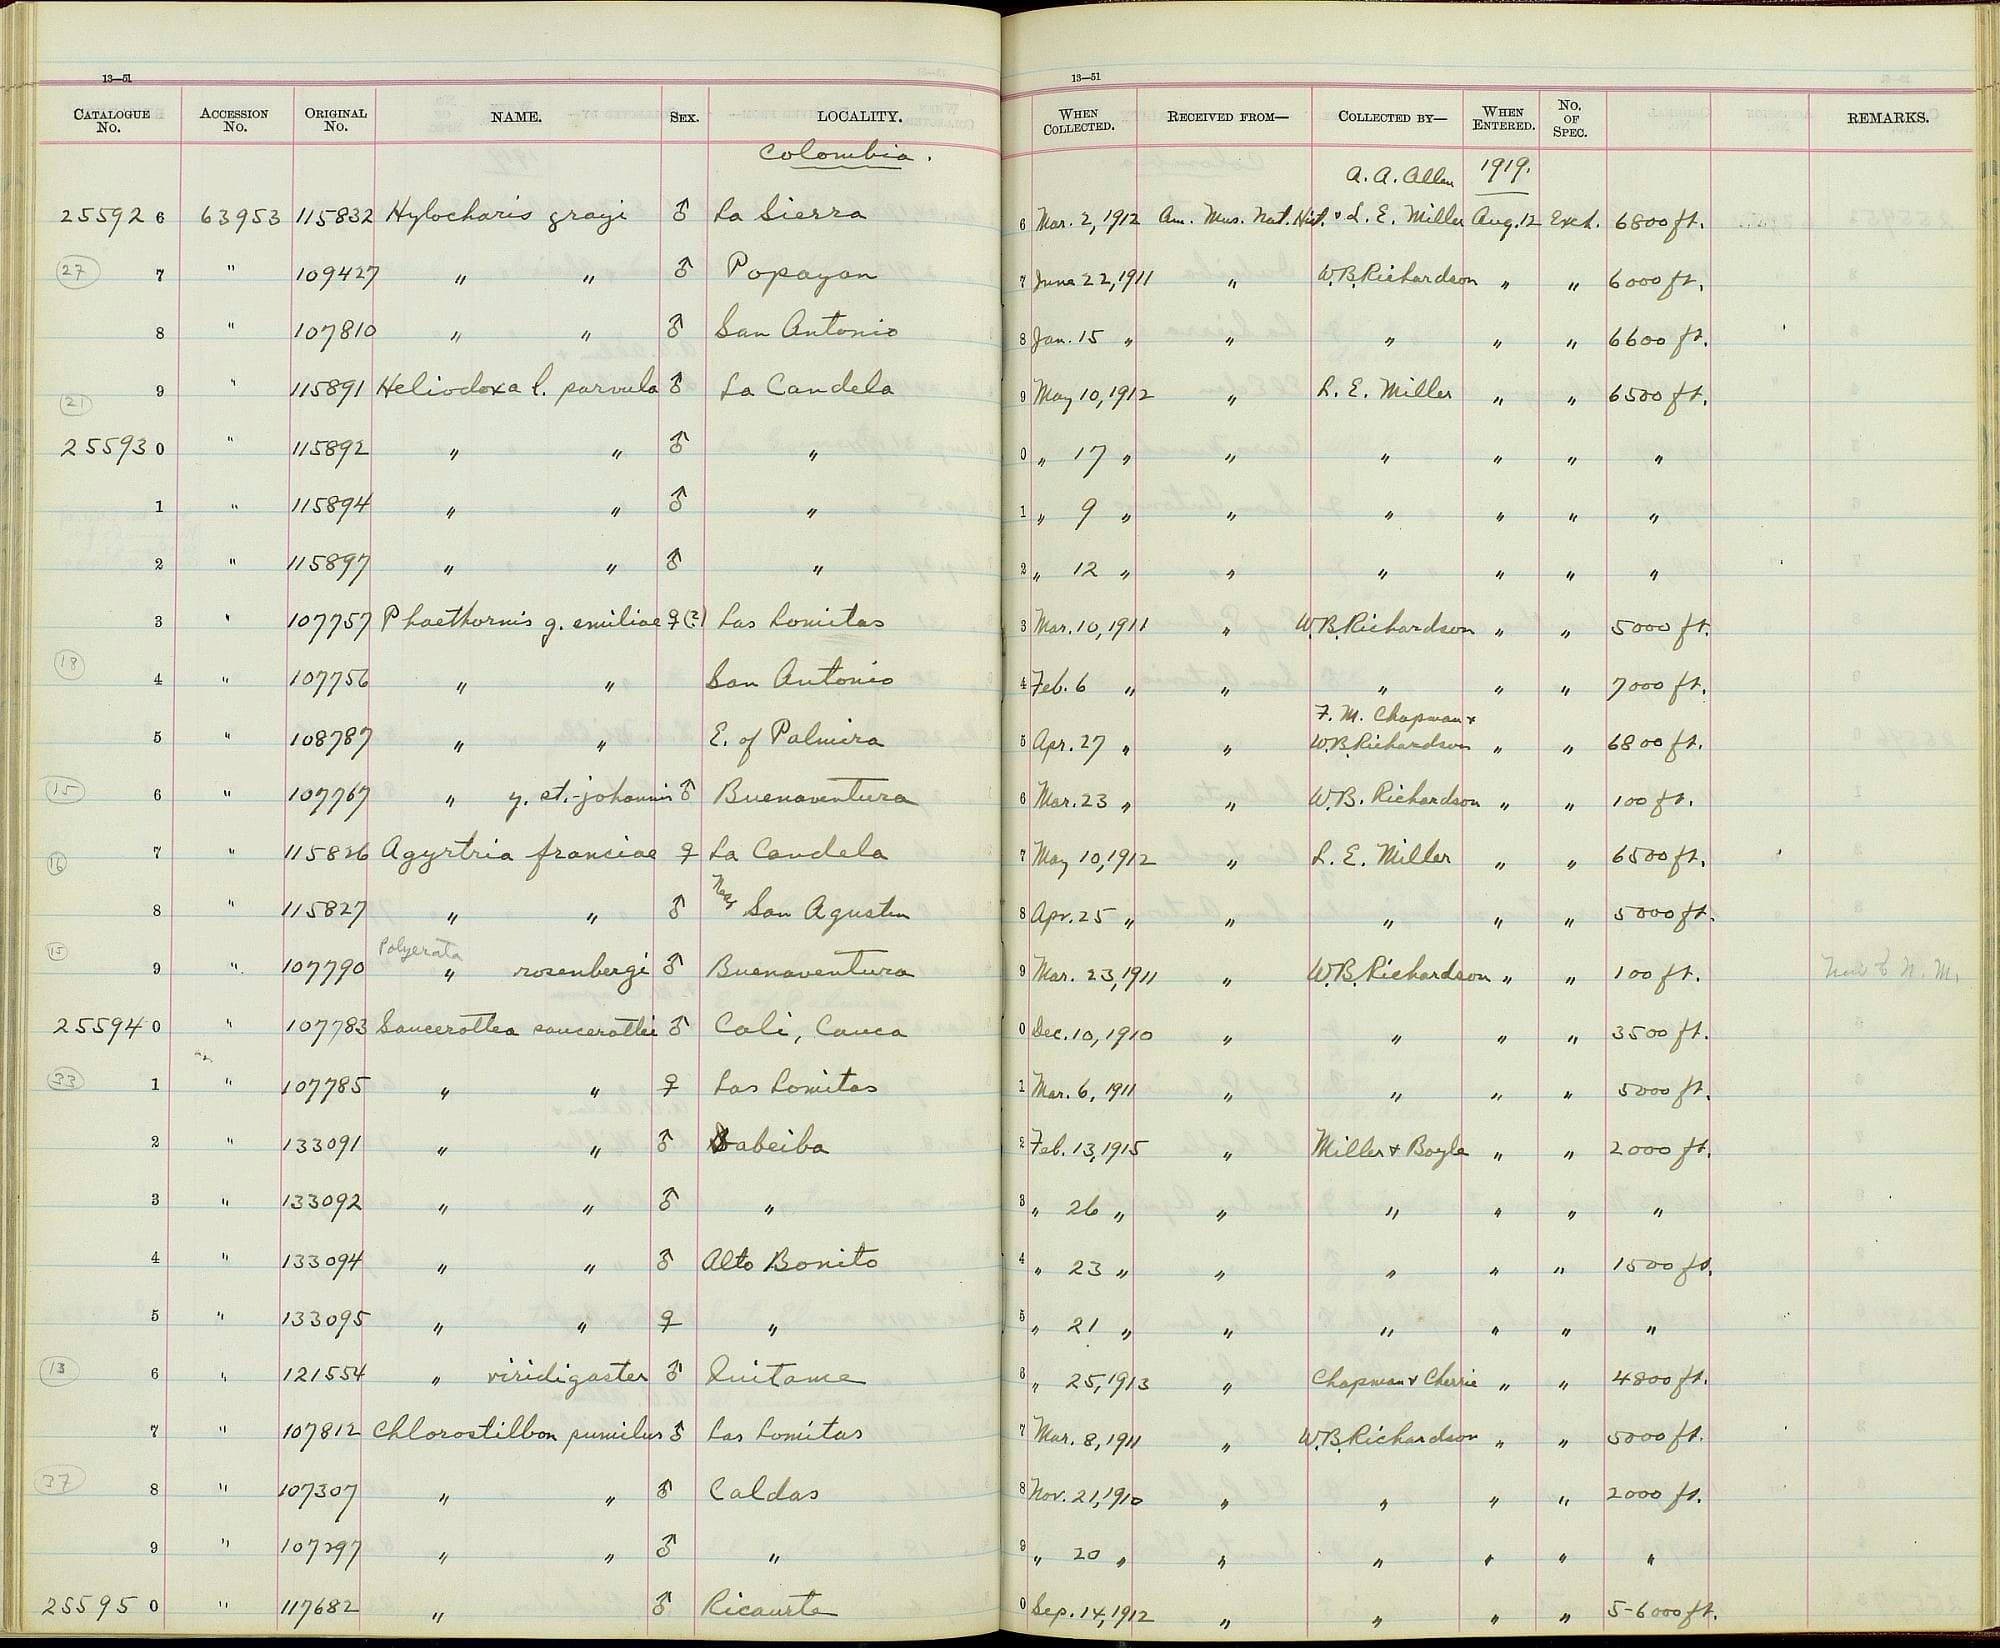 13—51
CATALOGUE No. ACCESSION No. ORIGINAL No. NAME. SEX. LOCALITY.
Colombia.
255926 63953 115832 Hylocharis grayi ♂ La Sierra
(27) 7 " 109427 " " ♂ Popayan
8 " 107810 " " ♂ San Antonio
9 " 115891 Heliodoxa l. parvula ♂ La Candela
(21)
255930 " 115892 " " ♂ "
1 " 115894 " " ♂ "
2 " 115897 " " ♂ "
3 " 107757 Phaethornis g. emiliae ♀(?) Las Lomitas
(18) 4 " 107756 " " San Antonio
5 " 108787 " " E. of Palmira
(15) 6 " 107767 " y. st.-johannis ♂ Buenaventura
(16) 7 " 115826 Agyrtria franciae ♀ La Candela
8 " 115827 " " ♂ Near San Agustin
(15) 9 " 107790 Polyerata " rosenbergi ♂ Buenaventura
255940 " 107783 Saucerottea saucerottei ♂ Cali, Cauca
(33) 1 " 107785 " " ♀ Las Lomitas
2 " 133091 " " ♂ Dabeiba
3 " 133092 " " ♂ "
4 " 133094 " " ♂ Alto Bonito
5 " 133095 " " ♀ "
(13) 6 " 121554 " viridigaster ♂ Quitame
7 " 107812 Chlorostilbon pumilus ♂ Las Lomitas
(37) 8 " 107307 " " ♂ Caldas
9 " 107297 " " ♂ "
255950 " 117682 " ♂ Ricaurte
13—51
WHEN COLLECTED. RECEIVED FROM— COLLECTED BY— WHEN ENTERED. NO. OF SPEC. REMARKS.
A. A. Allen 1919.
6 Mar. 2, 1912 Am. Mus. Nat. Hist. & L. E. Miller Aug. 12 Exch. 6800 ft.
7 June 22, 1911 " W.B.Richardson " " 6000 ft.
8 Jan. 15 " " " " " 6600 ft.
9 May 10, 1912 " L. E. Miller " " 6500 ft.
0 " 17 " " " " " "
1 " 9 " " " " " "
2 " 12 " " " " " "
3 Mar. 10, 1911 " W.B.Richardson " " 5000 ft.
4 Feb. 6 " " " " " 7000 ft.
F. M. Chapman &
5 Apr. 27 " " W.B.Richardson " " 6800 ft.
6 Mar. 23 " " W.B. Richardson " " 100 ft.
7 May 10, 1912 " L. E. Miller " " 6500 ft.
8 Apr. 25 " " " " " 5000 ft.
9 Mar. 23, 1911 " W.B.Richardson " " 100 ft. N. M.
0 Dec. 10, 1910 " " " " 3500 ft.
1 Mar. 6, 1911 " " " " 5000 ft.
2 Feb. 13, 1915 " Miller & Boyle " " 2000 ft.
3 " 26 " " " " " "
4 " 23 " " " " " 1500 ft.
5 " 21 " " " " " "
6 " 25, 1913 " Chapman & Cherrie " " 4800 ft.
7 Mar. 8, 1911 " W.B.Richardson " " 5000 ft.
8 Nov. 21, 1910 " " " " 2000 ft.
9 " 20 " " " " " "
0 Sep. 14, 1912 " " " " 5-6000 ft.